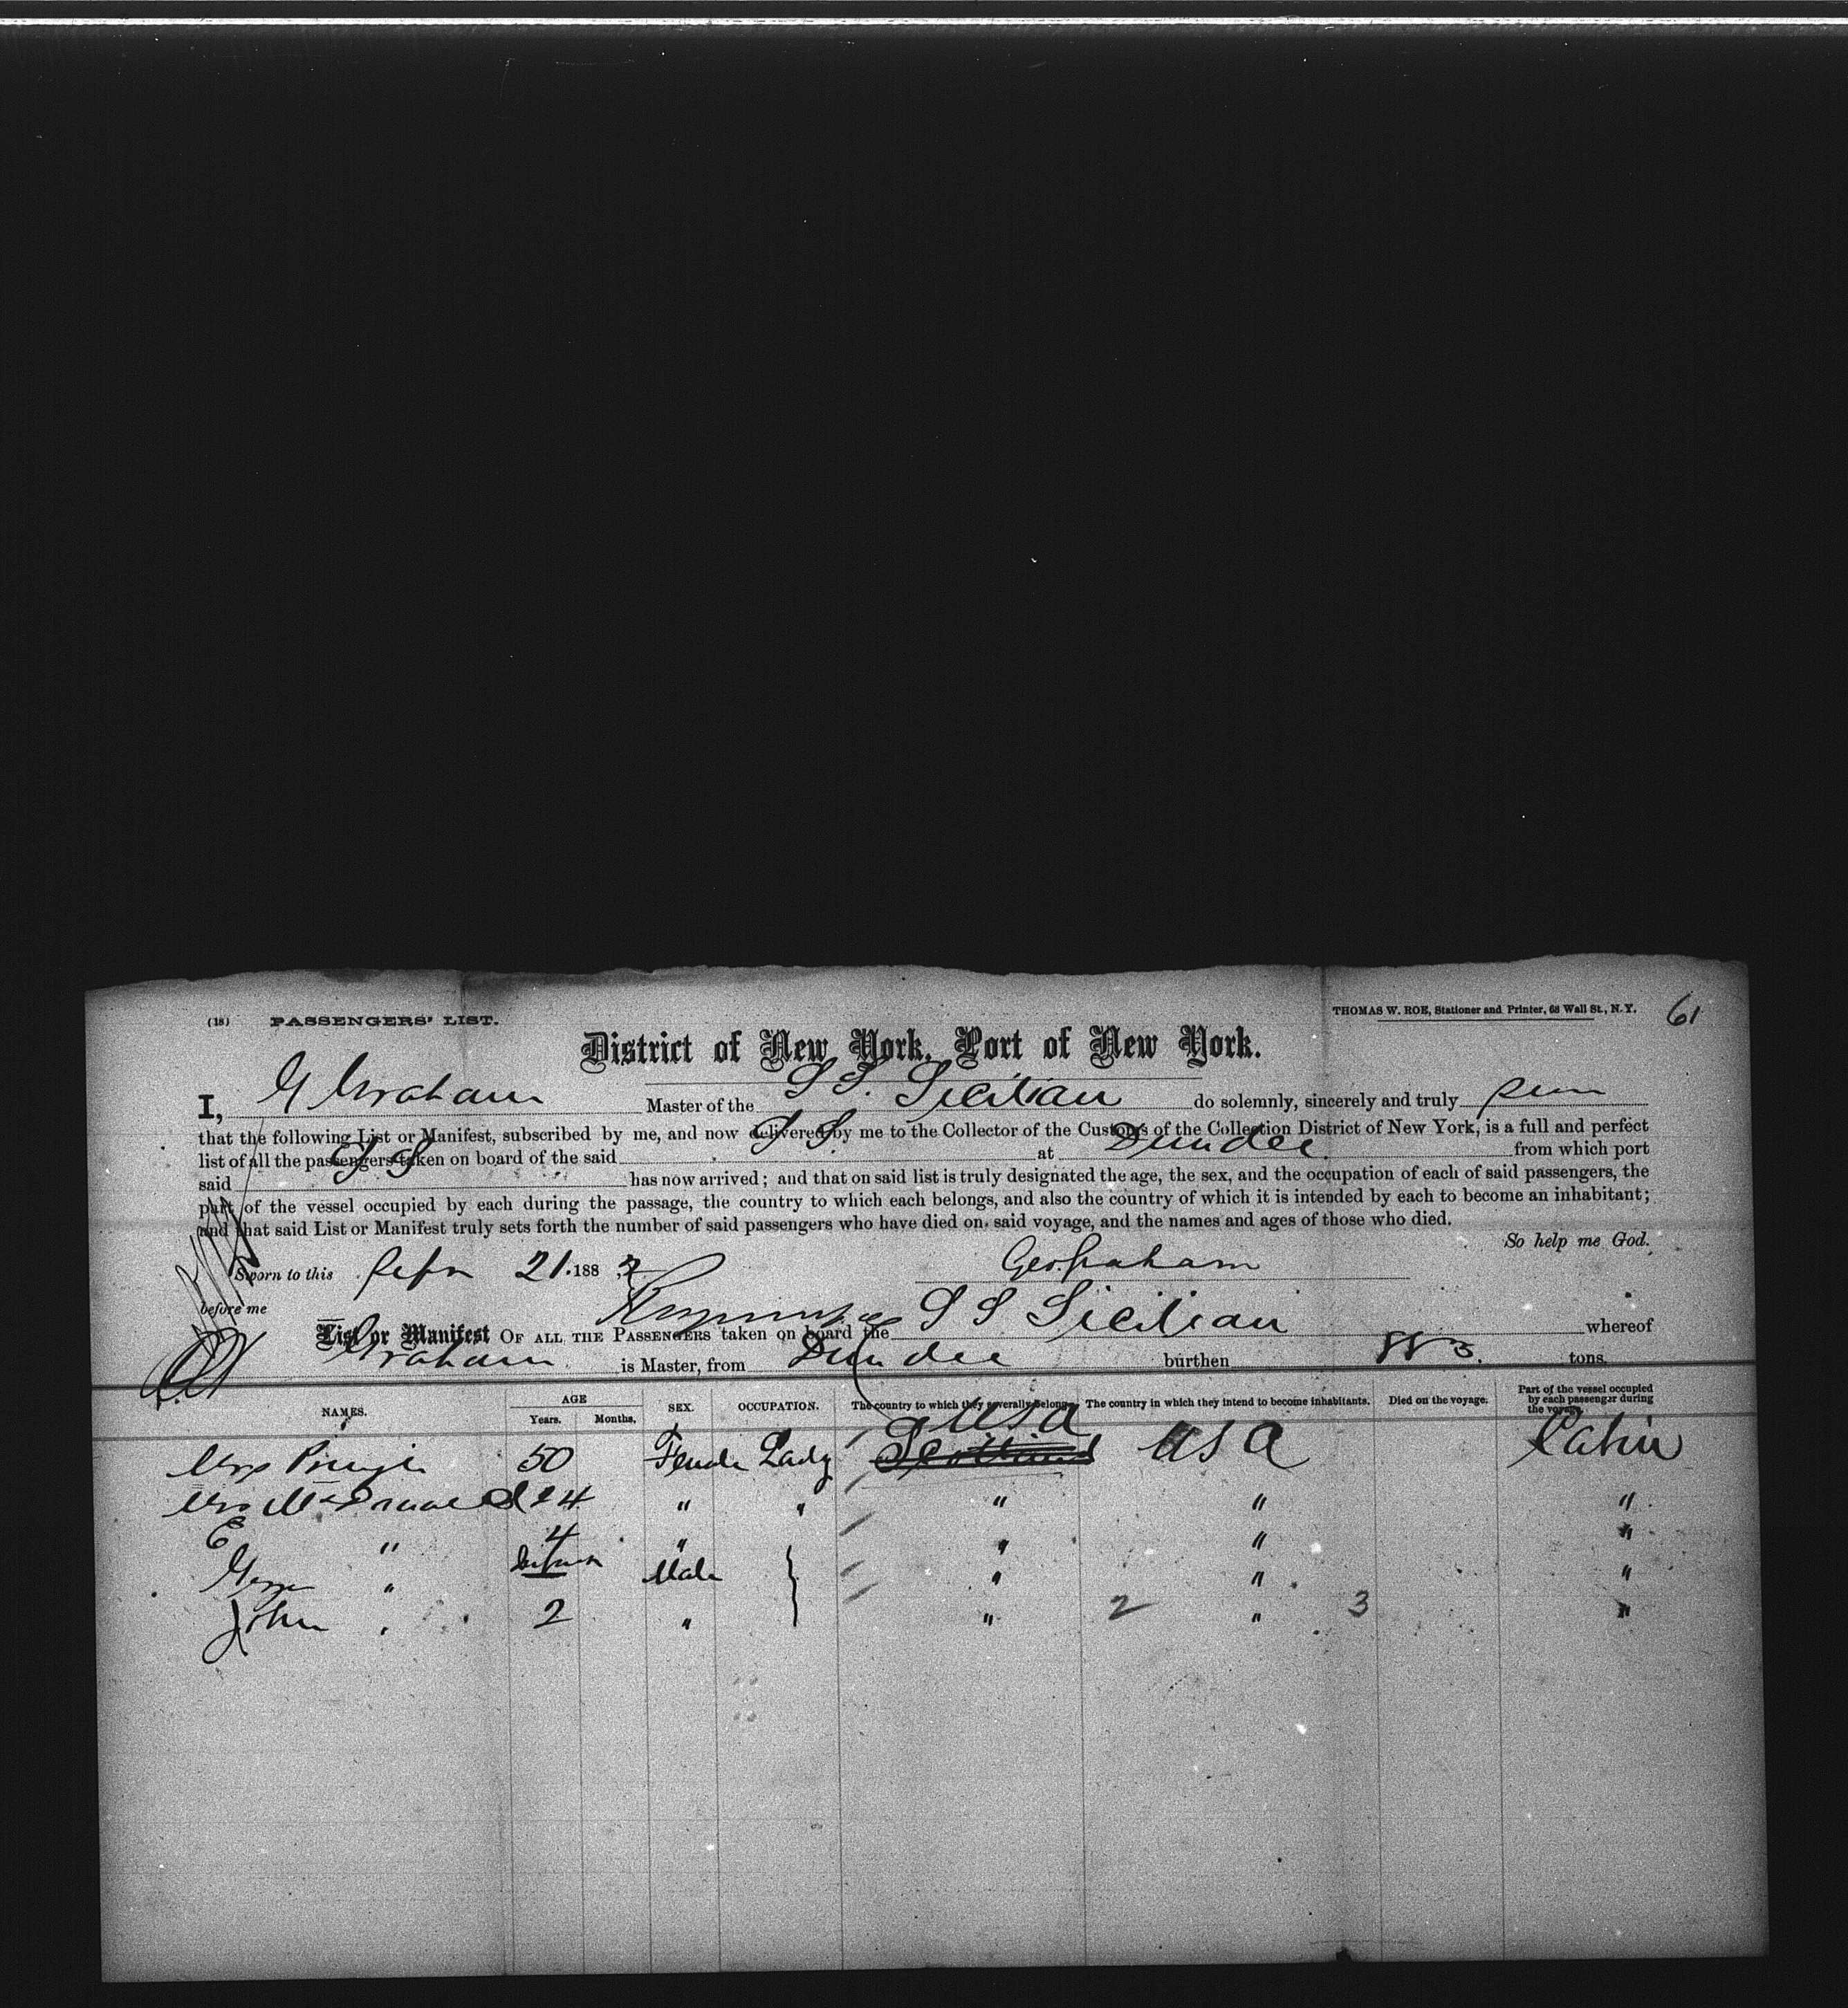 (18) PASSENGERS' LIST.
THOMAS W. ROE, Stationer and Printer, 68 Wall St., N.Y.
61
District of New York, Port of New York.
I, G Graham Master of the S S. Sicilian do solemnly, sincerely and truly
that the following List or Manifest, subscribed by me, and now delivered by me to the Collector of the Customs of the Collection District of New York, is a full and perfect
list of all the passengers taken on board of the said S S. at Dundee from which port
said S S has now arrived; and that on said list is truly designated the age, the sex, and the occupation of each of said passengers, the
part of the vessel occupied by each during the passage, the country to which each belongs, and also the country of which it is intended by each to become an inhabitant;
and that said List or Manifest truly sets forth the number of said passengers who have died on said voyage, and the names and ages of those who died.
So help me God.
Sworn to this 21. 188
Geo Graham
before me
List or Manifest OF ALL THE PASSENGERS taken on board the S S Sicilian whereof
Graham is Master, from Dundee burthen tons.
NAMES. AGE Years. Months. SEX. OCCUPATION. The country to which they severally belong. The country in which they intend to become inhabitants. Died on the voyage. Part of the vessel occupied by each passenger during the voyage.
USA
Mrs 50 Female Lady Scotland USA Cabin
Mrs 24 " " " " "
E " 4 " " " "
" Infant Male " " "
John " 2 " " 2 " 3 "